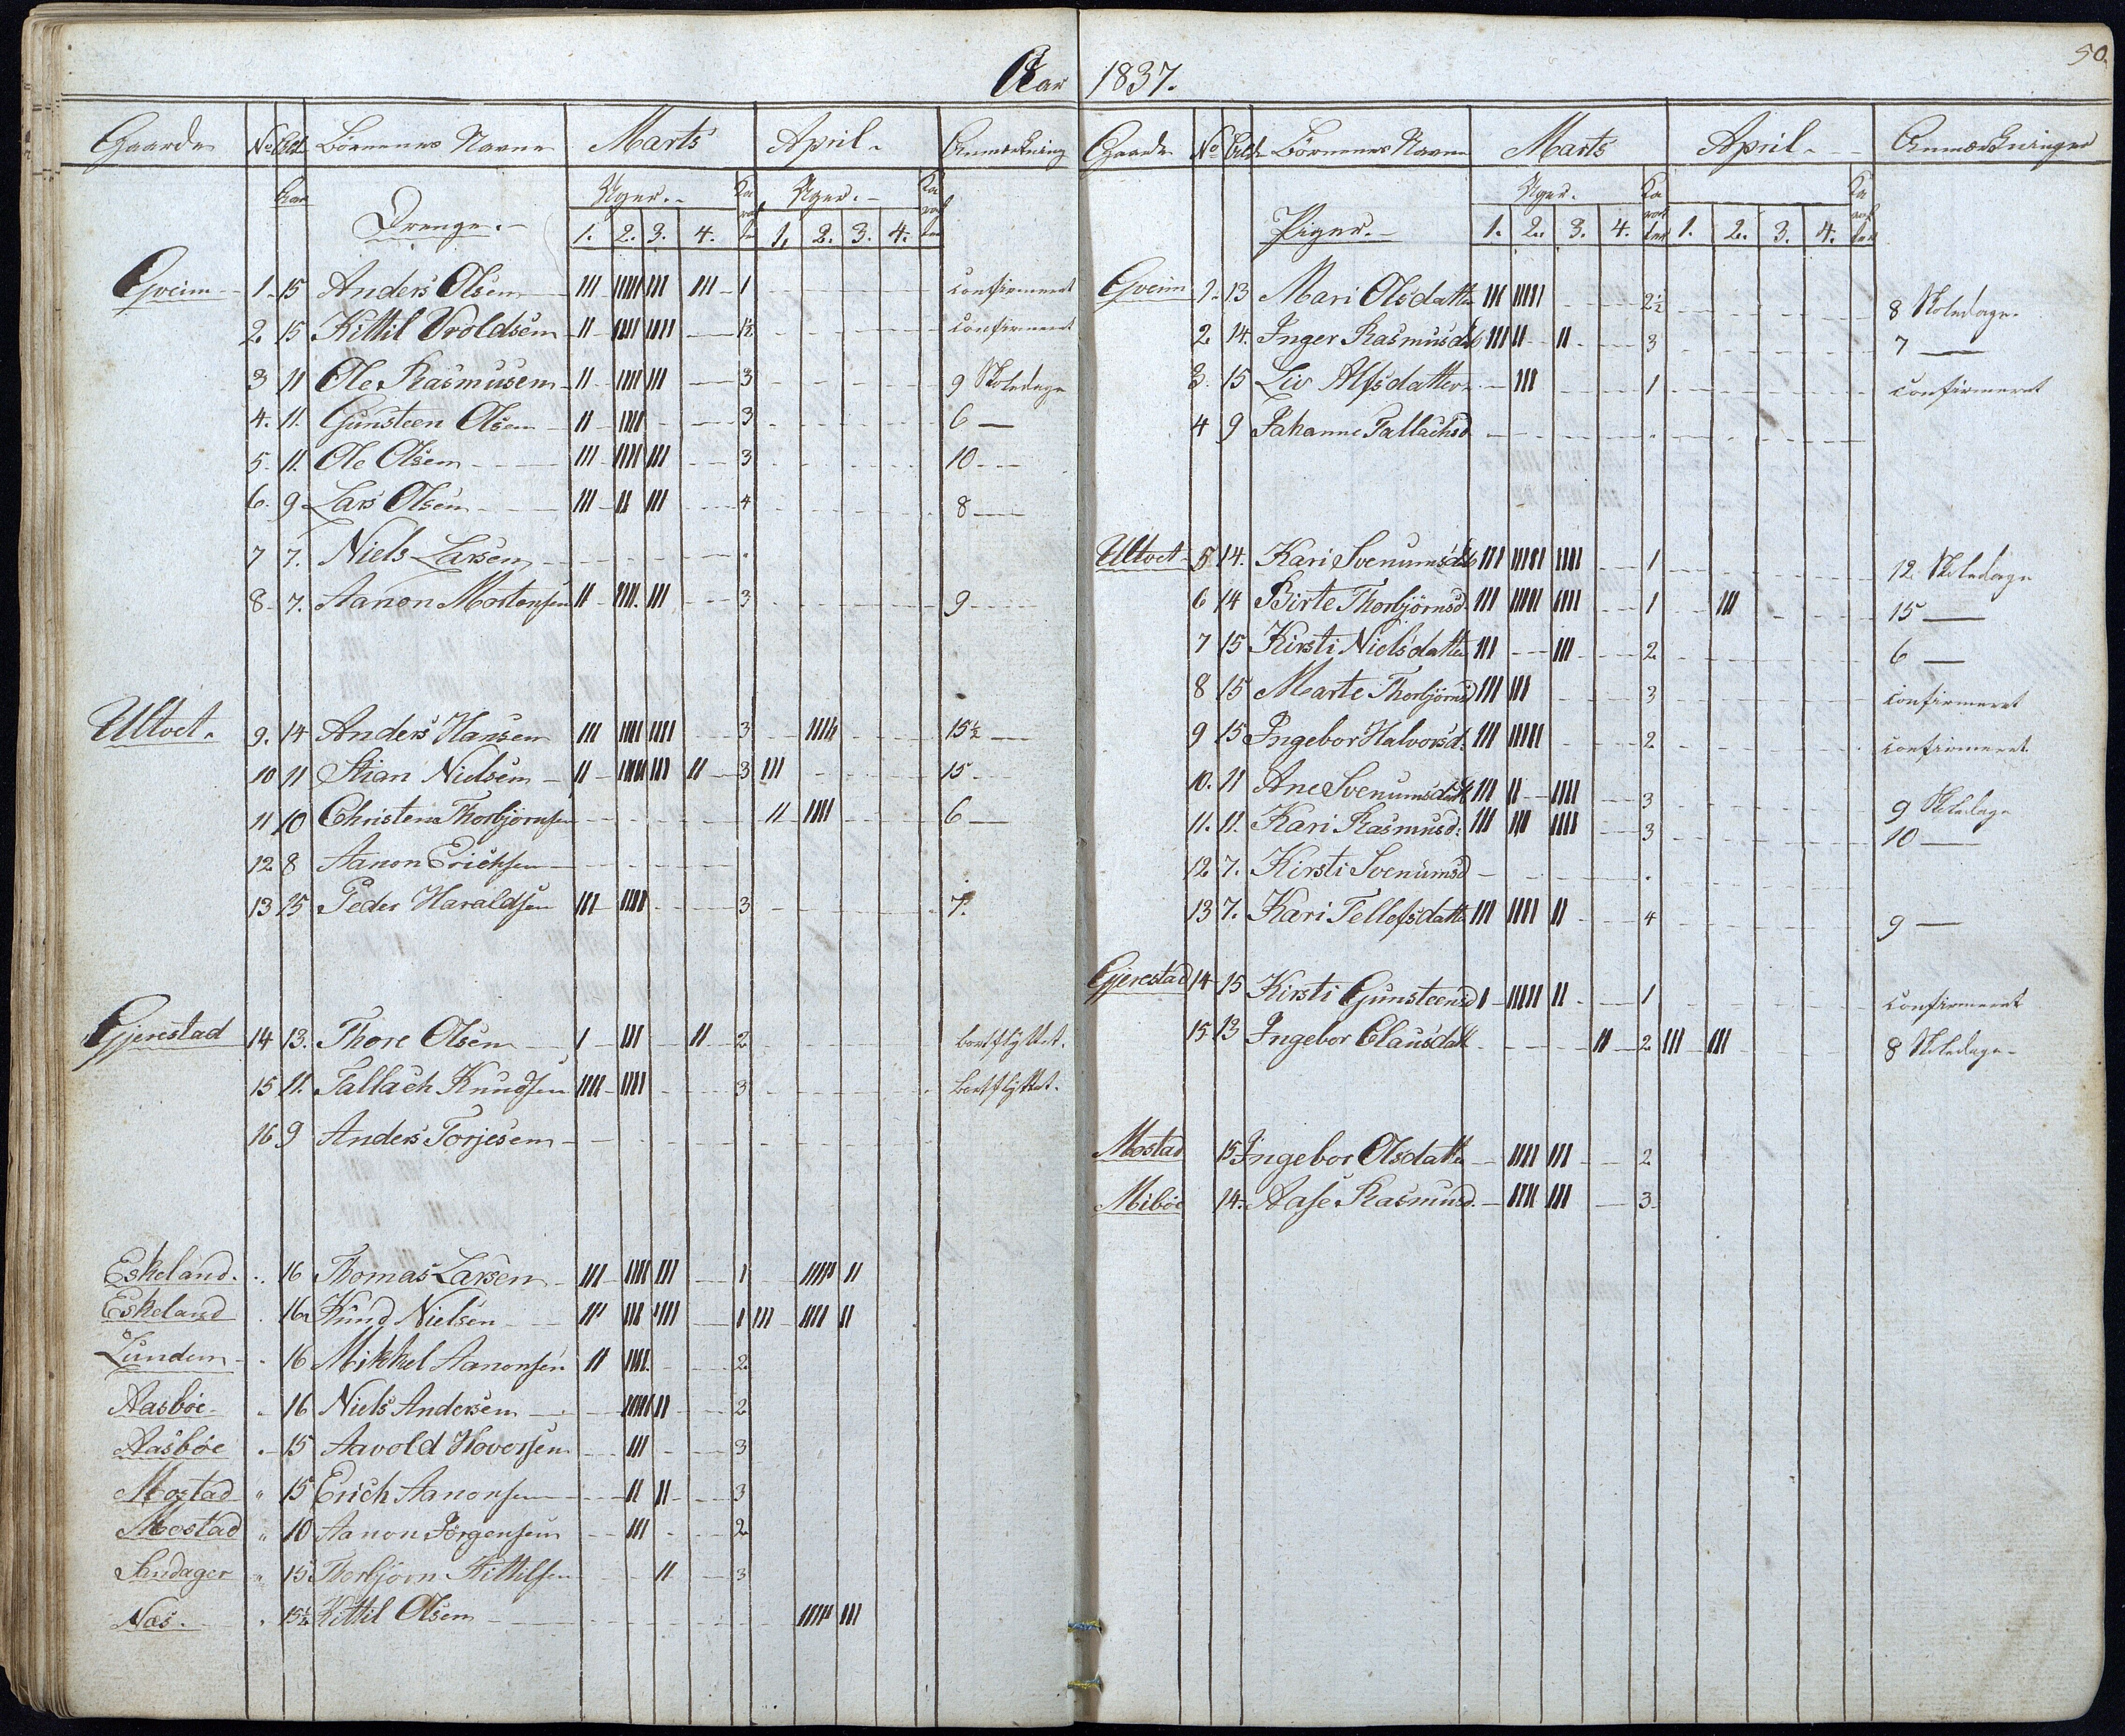 50.
Aar 1837.
Gaarde No Alder Børnenes Navne Marts April. Anmærkning
Aar Drenge. Uger. Karakter Uger. Karakter
1. 2. 3. 4. 1. 2. 3. 4.
Gveim 1. 15 Anders Olsen III IIIII III III 1 confirmeret
2 15 Kittil Vroldsen II IIII IIII 1½ confirmeret
3 11 Ole Rasmusen II IIII III 3 9 Skoledage
4. 11. Gunsteen Olsen II IIII 3 6 —
5. 11. Ole Olsen III IIII III 3 10 —
6. 9 Lars Olsen III II III 4 8 —
7 7. Niels Larsen
8. 7. Aanon Mortensen II IIII III 3 9
Ultvet. 9. 14 Anders Hansen III IIII IIII 3 IIII 15½ —
10 11 Stian Nielsen II IIIII III II 3 III 15
11 10 Christen Thorbjørnsen II IIII 6 —
12 8 Aanon Erichsen
13 15 Peder Haraldsen III IIII 3 7.
Gjerestad 14 13. Thore Olsen I III II 2 bortflyttet.
15 11. Tallach Knudsen IIII IIII 3 bortflyttet.
16 9 Anders Torjesen
Eskeland. 16 Thomas Larsen III IIII III 1 IIIII II
Eskeland 16 Knud Nielsen III III IIII 1 III IIII II
Lunden 16 Mikkel Aanonsen II IIII 2
Aasbøe 16 Niels Andersen IIIII II 2
Aasbøe 15 Aavold Hoversen III 3
Mostad " 15 Erich Aanonsen II II 3
Mostad " 10 Aanon Jørgensen III 2
Sandager " 15 Thorbjørn Kittilsen II 3
Næs. 15½ Kittil Olsen IIIII III
Gaarde No Alder Børnenes Navne Marts April. Anmærkninger
Piger. Uger. Karakter Karakter
1. 2. 3. 4. 1. 2. 3. 4.
Gveim 1. 13 Mari Olsdatter III IIIII 2½ 8 Skoledage.
2 14. Inger Rasmusd. III II II 3 7 —
3. 15 Liv Alfsdatter III 1 confirmeret
4 9 Johanne Tallachsd.
Ultvet 5 14. Kari Svenumsd. III IIIII IIII 1 12 Skoledage
6 14 Birte Thorbjørnsd. III IIIII IIII 1 III 15 —
7 15 Kirsti Nielsdatter III III 2 6 —
8 15 Marte Thorbjørnsd III III 3 confirmeret
9 15 Ingebor Halvorsd. III IIIII 2 confirmeret
10. 11 Ane Svenumsdatt III II IIII 3 9 Skoledage
11. 11. Kari Rasmusd. III III IIII 3 10 —
12. 7. Kirsti Svenumsd
13 7. Kari Tellefsdatter III IIII II 4 9 —
Gjerestad 14 15 Kirsti Gunsteensd I IIIII II 1 confirmeret
15 13 Ingebor Clausdatt II 2 III III 8 Skoledage
Mostad 15 Ingebor Olsdatter IIII III 2
Mibøe 14. Aase Rasmusd. IIII III 3.